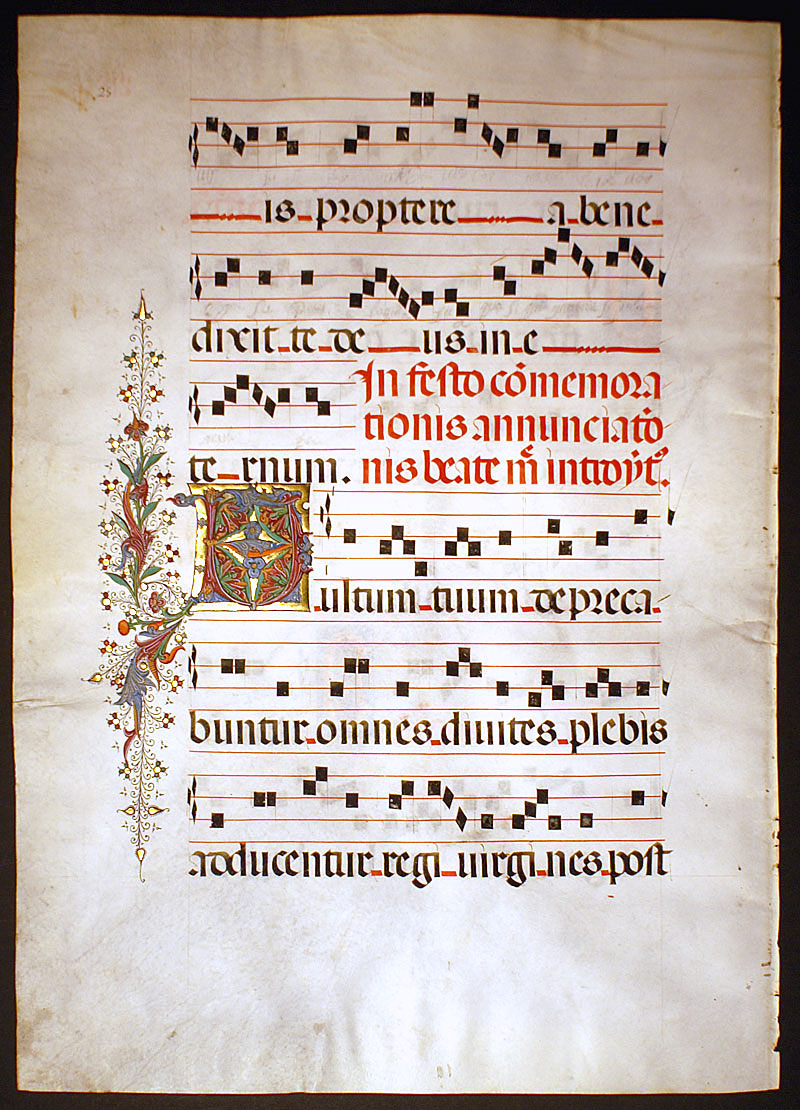 25
is proptere a bene
dixit te de us in e
In festo cōmemora
tionis annunciatō
te rnum. nis beate m̄ introyt̄.
Vultum tuum depreca
buntur omnes diuites plebis
adducentur regi uirgines post